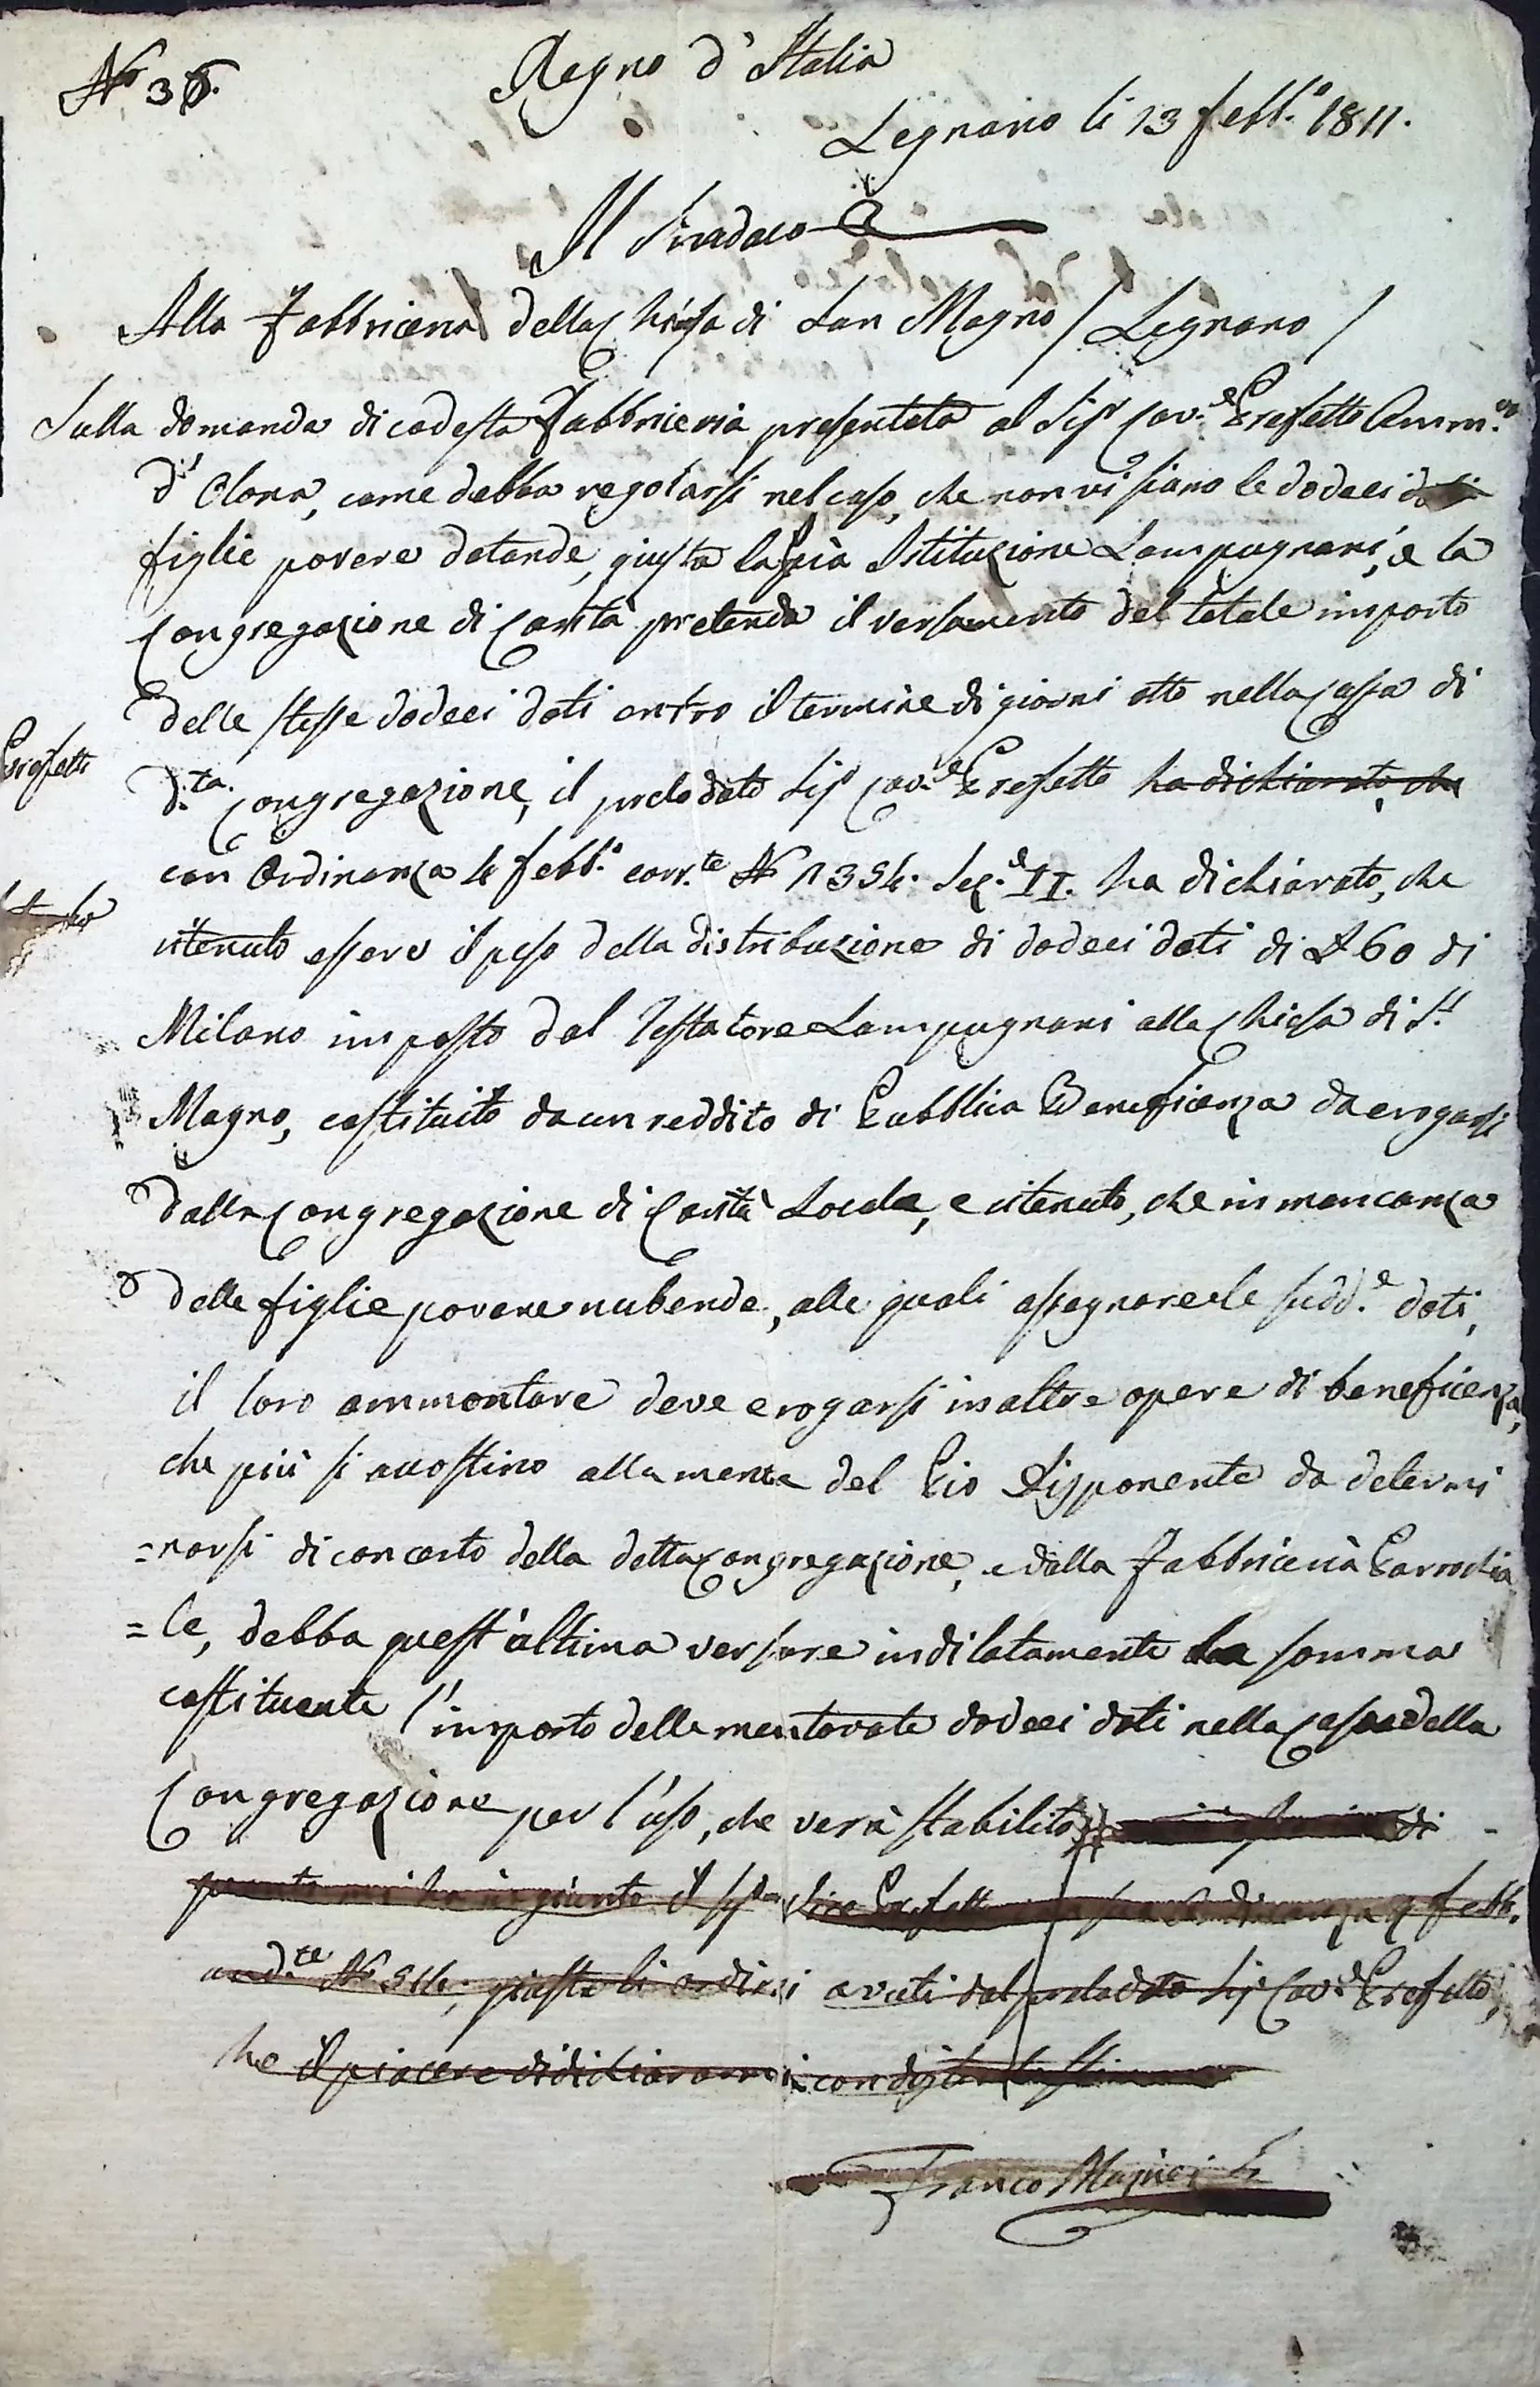 N.o 36.
Regno d'Italia
Legnano li 13 febb.o 1811.
Il Sindaco
Alla Fabbriceria della Chiesa di San Magno / Legnano /
Sulla domanda di codesta Fabbriceria presentata al Sig.r Cav.e Prefetto Amm.vo
d'Olona, come debba regolarsi nel caso, che non vi siano le dodeci doti
figlie povere dotande, giusta la pia Istituzione Lampugnani, e la
Congregazione di Carità pretenda il versamento del totale importo
delle stesse dodeci doti entro il termine di giorni otto nella Cassa di
d.ta Congregazione, il prelodato Sig.r Cav.e Prefetto ha dichiarato, che
Prefetto
con Ordinanza 4 febb.o corr.te N.o 1354. Sez.e II. ha dichiarato, che
ritenuto essere il peso della distribuzione di dodeci doti di £ 60 di
Milano imposto dal Testatore Lampugnani alla Chiesa di S.n
Magno, costituito da un reddito di Pubblica Beneficenza da erogarsi
dalla Congregazione di Carità Locale, e ritenuto, che in mancanza
delle figlie povere nubende, alle quali assegnare le sudd.e doti,
il loro ammontare deve erogarsi in altre opere di beneficenza,
che più si accostino alla mente del Pio Disponente da determi
=narsi di concerto della detta Congregazione, e dalla Fabbriceria Parrochia
=le, debba quest'ultima versare indilatamente la somma
costituente l'importo delle mentovate dodeci doti nella Cassa della
Congregazione per l'uso, che verrà stabilito di
quanto mi ha ingiunto il Sig.r Vice Prefetto Ordinanza febb.
and.te N.o 514, giusta li ordini avuti dal prelodato Sig.r Cav.e Prefetto,
ho il piacere di dichiararmi con distinta stima
Franco